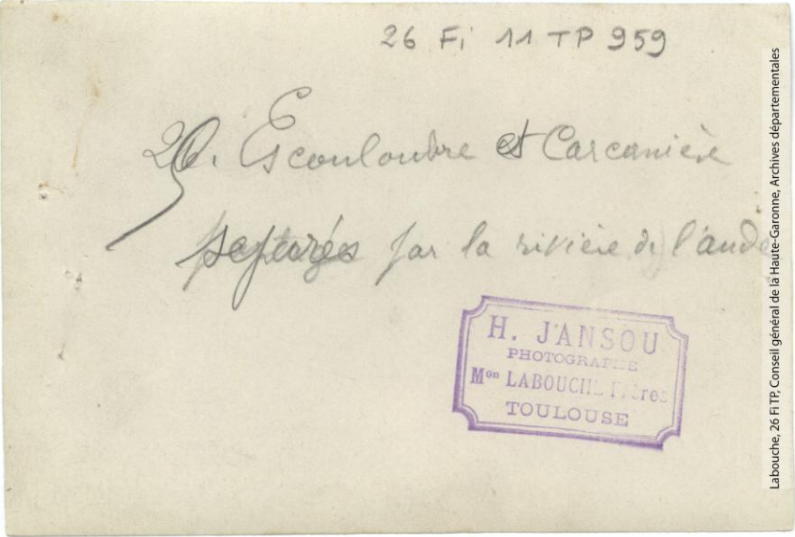 26 Fi 11 TP 959
26. Escouloubre et Carcanière
séparés par la rivière de l'aude
H. JANSOU
PHOTOGRAPHE
Mon LABOUCHE Frères
TOULOUSE
Labouche, 26 Fi TP, Conseil général de la Haute-Garonne, Archives départementales